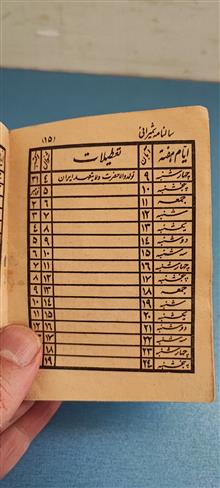 سالنامه شیرازی (۱۵)
ایام هفته تعطیلات
چهارشنبه ۹ تولد والاحضرت ولایتعهد ایران ۴ ۳۱
پنجشنبه ۱۰ ۵ نوامبر
جمعه ۱۱ ۶ ۲
شنبه ۱۲ ۷ ۳
یکشنبه ۱۳ ۸ ۴
دوشنبه ۱۴ ۹ ۵
سه شنبه ۱۵ ۱۰ ۶
چهارشنبه ۱۶ ۱۱ ۷
پنجشنبه ۱۷ ۱۲ ۸
جمعه ۱۸ ۱۳ ۹
شنبه ۱۹ ۱۴ ۱۰
یکشنبه ۲۰ ۱۵ ۱۱
دوشنبه ۲۱ ۱۶ ۱۲
سه شنبه ۲۲ ۱۷
چهارشنبه ۲۳ ۱۸
پنجشنبه ۲۴ ۱۹